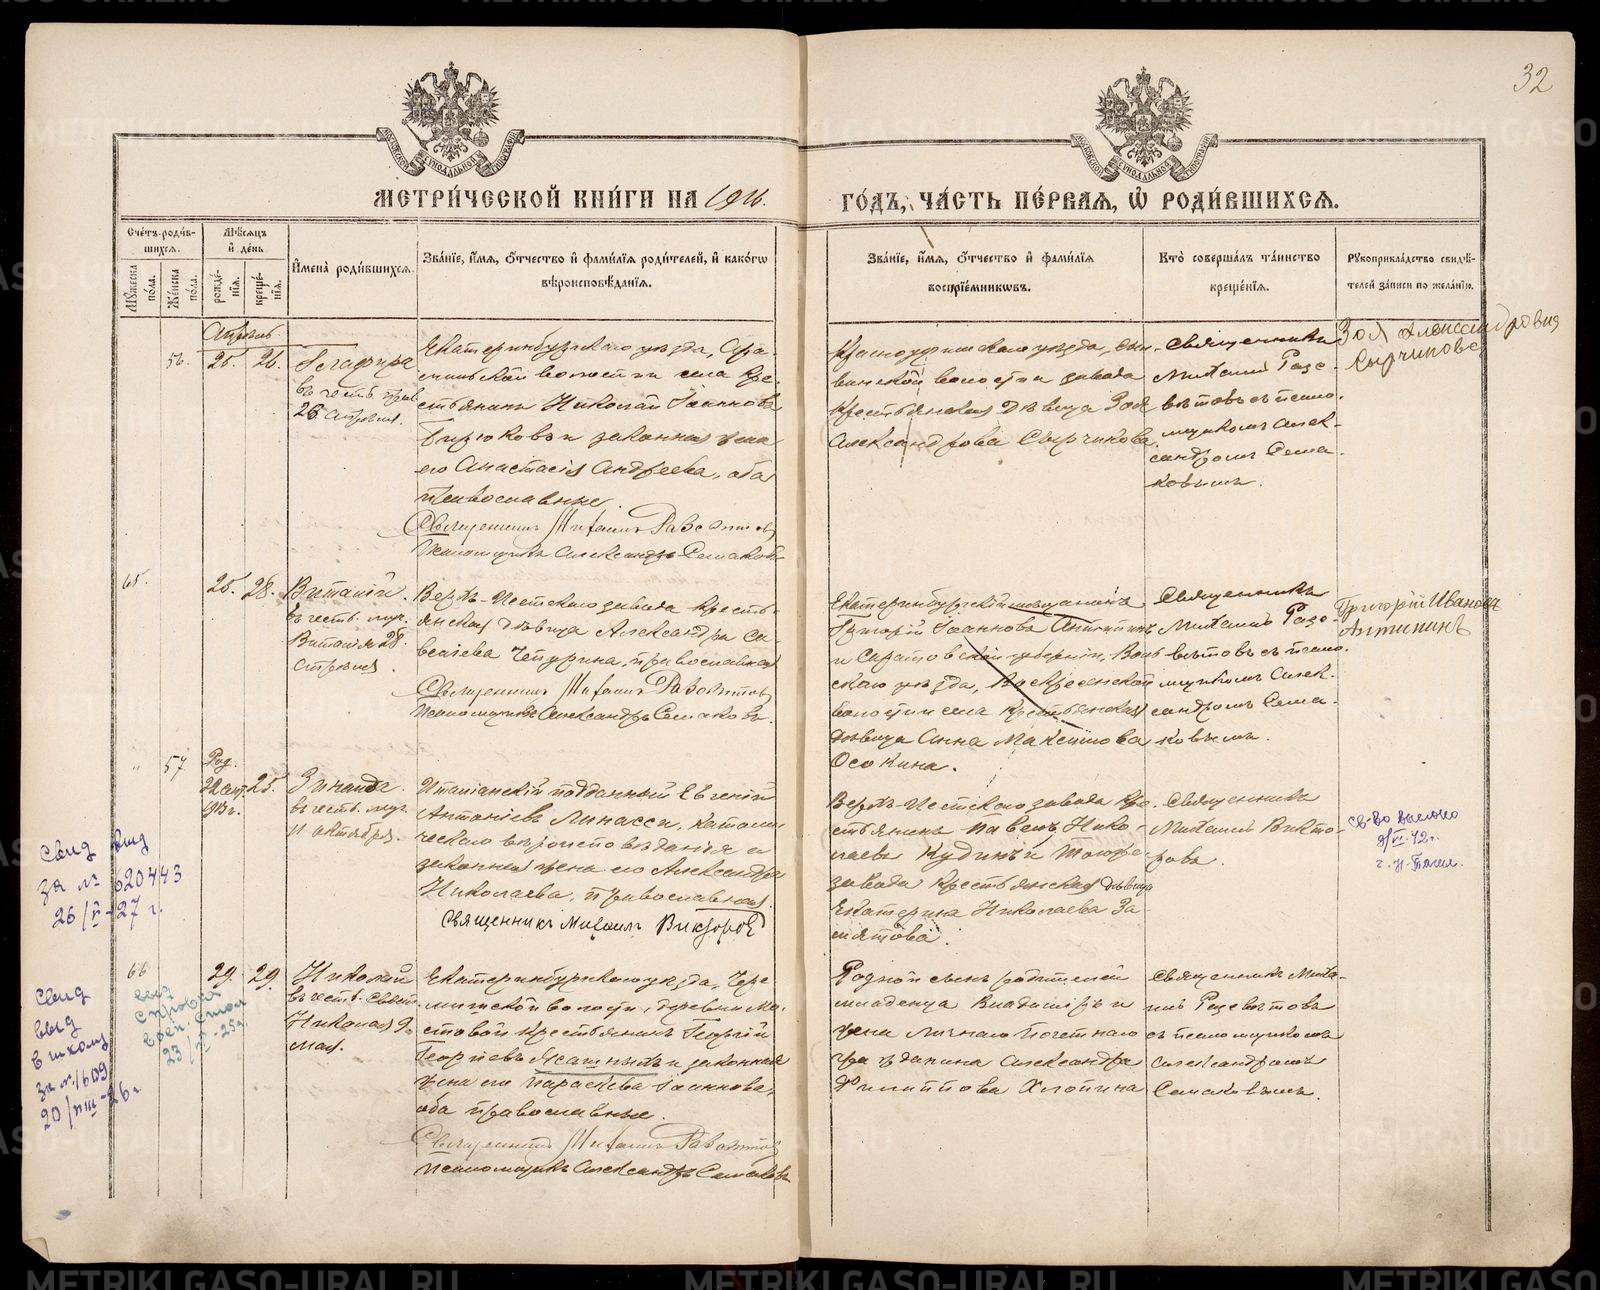 32
МЕТРИ́ЧЕСКОЙ КНИ́ГИ НА 1916
ГО́ДЪ, ЧА́СТЬ ПЕ́РВАЯ, Ѡ РОДИ́ВШИХСЯ.
Сче́тъ роди́в-
шихся.
Мѣ́сяцъ
и̂ де́нь
Мꙋ́жеска по́ла.
Же́нска по́ла.
рожде́нїя.
креще́нїя.
И̂мена̀ роди́вшихся.
Зва́нїе, и̂́мя, ѻ҆́тчество и̂ фами́лїя роди́телей, и̂ како́гѡ
вѣроисповѣ́данїя.
Зва́нїе, и̂́мя, ѻ҆́тчество и̂ фами́лїя
воспрїе́мникѡвъ.
Кто̀ соверша́лъ та́инство
креще́нїя.
Рꙋкоприкла́дство свидѣ́-
телей за́писи по жела́нїю.
Апрѣль
56. 25. 26. Глафира
въ честь прав.
26 апрѣля.
Екатеринбургскаго уѣзда, Ара-
мильской волости и села кре-
стьянинъ Николай Іоанновъ
Бирюковъ и законная жена
его Анастасія Андреева, оба
православные.
Священникъ Михаилъ
Псаломщикъ Александръ Семаковъ
Красноуфимскаго уѣзда,
волости и завода
крестьянская дѣвица Зоя
Александрова Сырчикова.
Священникъ
Михаилъ
съ псало-
мщикомъ Алек-
сандромъ Сема-
ковымъ.
Зоя Александровна
Сырчикова
65. 25. 28. Виталій
въ честь муч.
Виталія 28
апрѣля.
Верхъ-Исетскаго завода кресть-
янская дѣвица Александра Са-
велiева Чепурина, православная
Священникъ Михаилъ
Псаломщикъ Александръ Семаковъ.
Екатеринбургскій мѣщанинъ
Григорій Іоанновъ Антипинъ
и Саратовской губерніи,
скаго уѣзда, Воскресенской
волости и села крестьянская
дѣвица Анна Максимова
Осокина.
Священникъ
Михаилъ
съ псало-
мщикомъ Алек-
сандромъ Сема-
ковымъ.
Григорій Ивановъ
Антипинъ
57 Род.
22 25. Зинаида
въ честь муч.
11 октября.
Итальянскій подданный Евгеній
Антоніевъ Минасси, католи-
ческаго вѣроисповѣданія и
законная жена его Александра
Николаева, православная.
Священникъ Михаилъ Викторов
Верхъ-Исетскаго завода кре-
стьянинъ Павелъ Нико-
лаевъ Кудинъ и
завода крестьянская дѣвица
Екатерина Николаева За
мятова.
Священникъ
Михаилъ Викто-
ровъ.
св-во выслано
9/VI-42 г.
г. Н-Тагил.
Свид выд
за № 620443
26/V-27 г.
66 29. 29. Николай
въ честь
Николая 9
мая.
Екатеринбургскаго уѣзда,
волости, деревни Мо-
стовой крестьянинъ Георгій
Георгіевъ и законная
жена его Параскева Іоаннова,
оба православные.
Священникъ Михаилъ
Псаломщикъ Александръ Семаковъ
Родной сынъ родителей
младенца Владиміръ и
жена личнаго почетнаго
гражданина Александра
Филиппова Хлопина
Священникъ Миха-
илъ
съ псаломщикомъ
Александромъ
Семаковымъ.
Свид
выд
в школу
за № 1609
20/VIII-26 г
выд
справка
23/IX-25 г